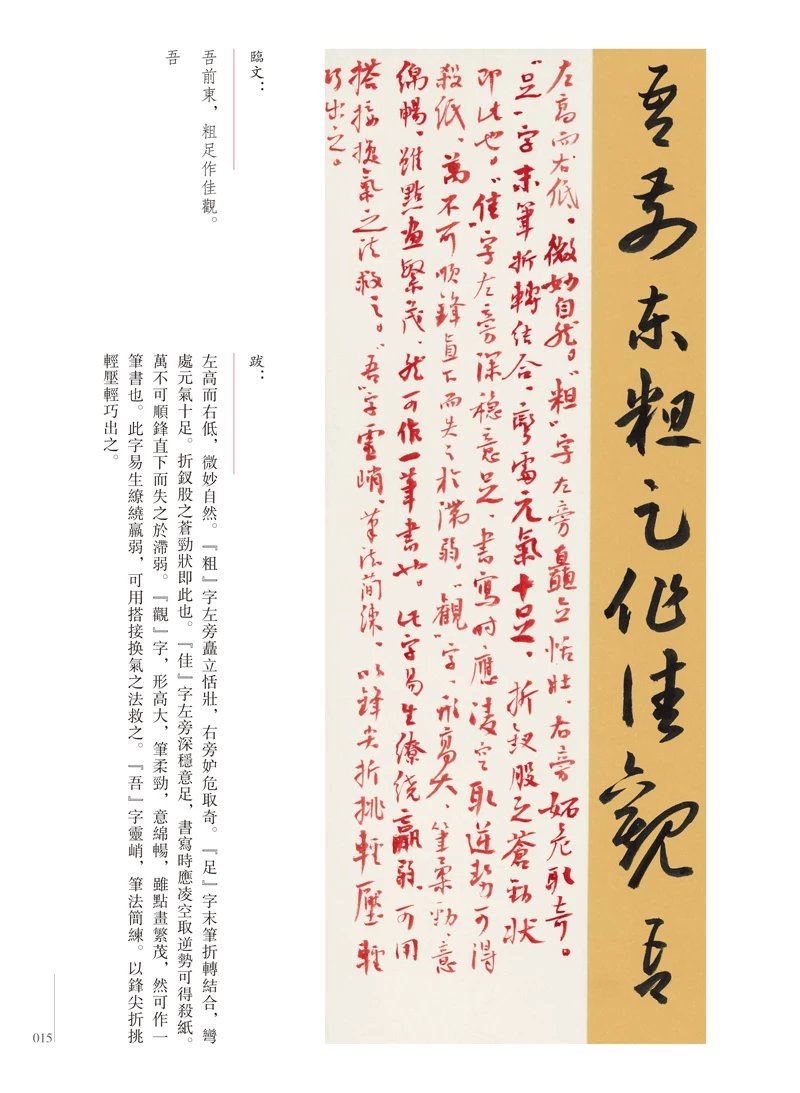 吾前東粗足作佳觀吾
左高而右低。微妙自然。“粗”字左旁矗立恬壯、右旁妒危取奇。
“足”字末筆折轉結合、彎處元氣十足、折釵股之蒼勁狀
即此也。“佳”字左旁深穩意足、書寫時應凌空取逆勢可得
殺紙、萬不可順鋒直下而失之於滯弱。“觀”字、形高大、筆柔勁、意
綿暢、雖點畫繁茂、然可作一筆書也。此字易生繚繞羸弱、可用
搭接換氣之法救之。“吾”字靈峭、筆法簡練、以鋒尖折挑輕壓輕
巧出之。
臨文：
吾前東，粗足作佳觀。
吾
跋：
左高而右低，微妙自然。『粗』字左旁矗立恬壯，右旁妒危取奇。『足』字末筆折轉結合，彎
處元氣十足。折釵股之蒼勁狀即此也。『佳』字左旁深穩意足，書寫時應凌空取逆勢可得殺紙。
萬不可順鋒直下而失之於滯弱。『觀』字，形高大，筆柔勁，意綿暢，雖點畫繁茂，然可作一
筆書也。此字易生繚繞羸弱，可用搭接换氣之法救之。『吾』字靈峭，筆法簡練。以鋒尖折挑
輕壓輕巧出之。
015